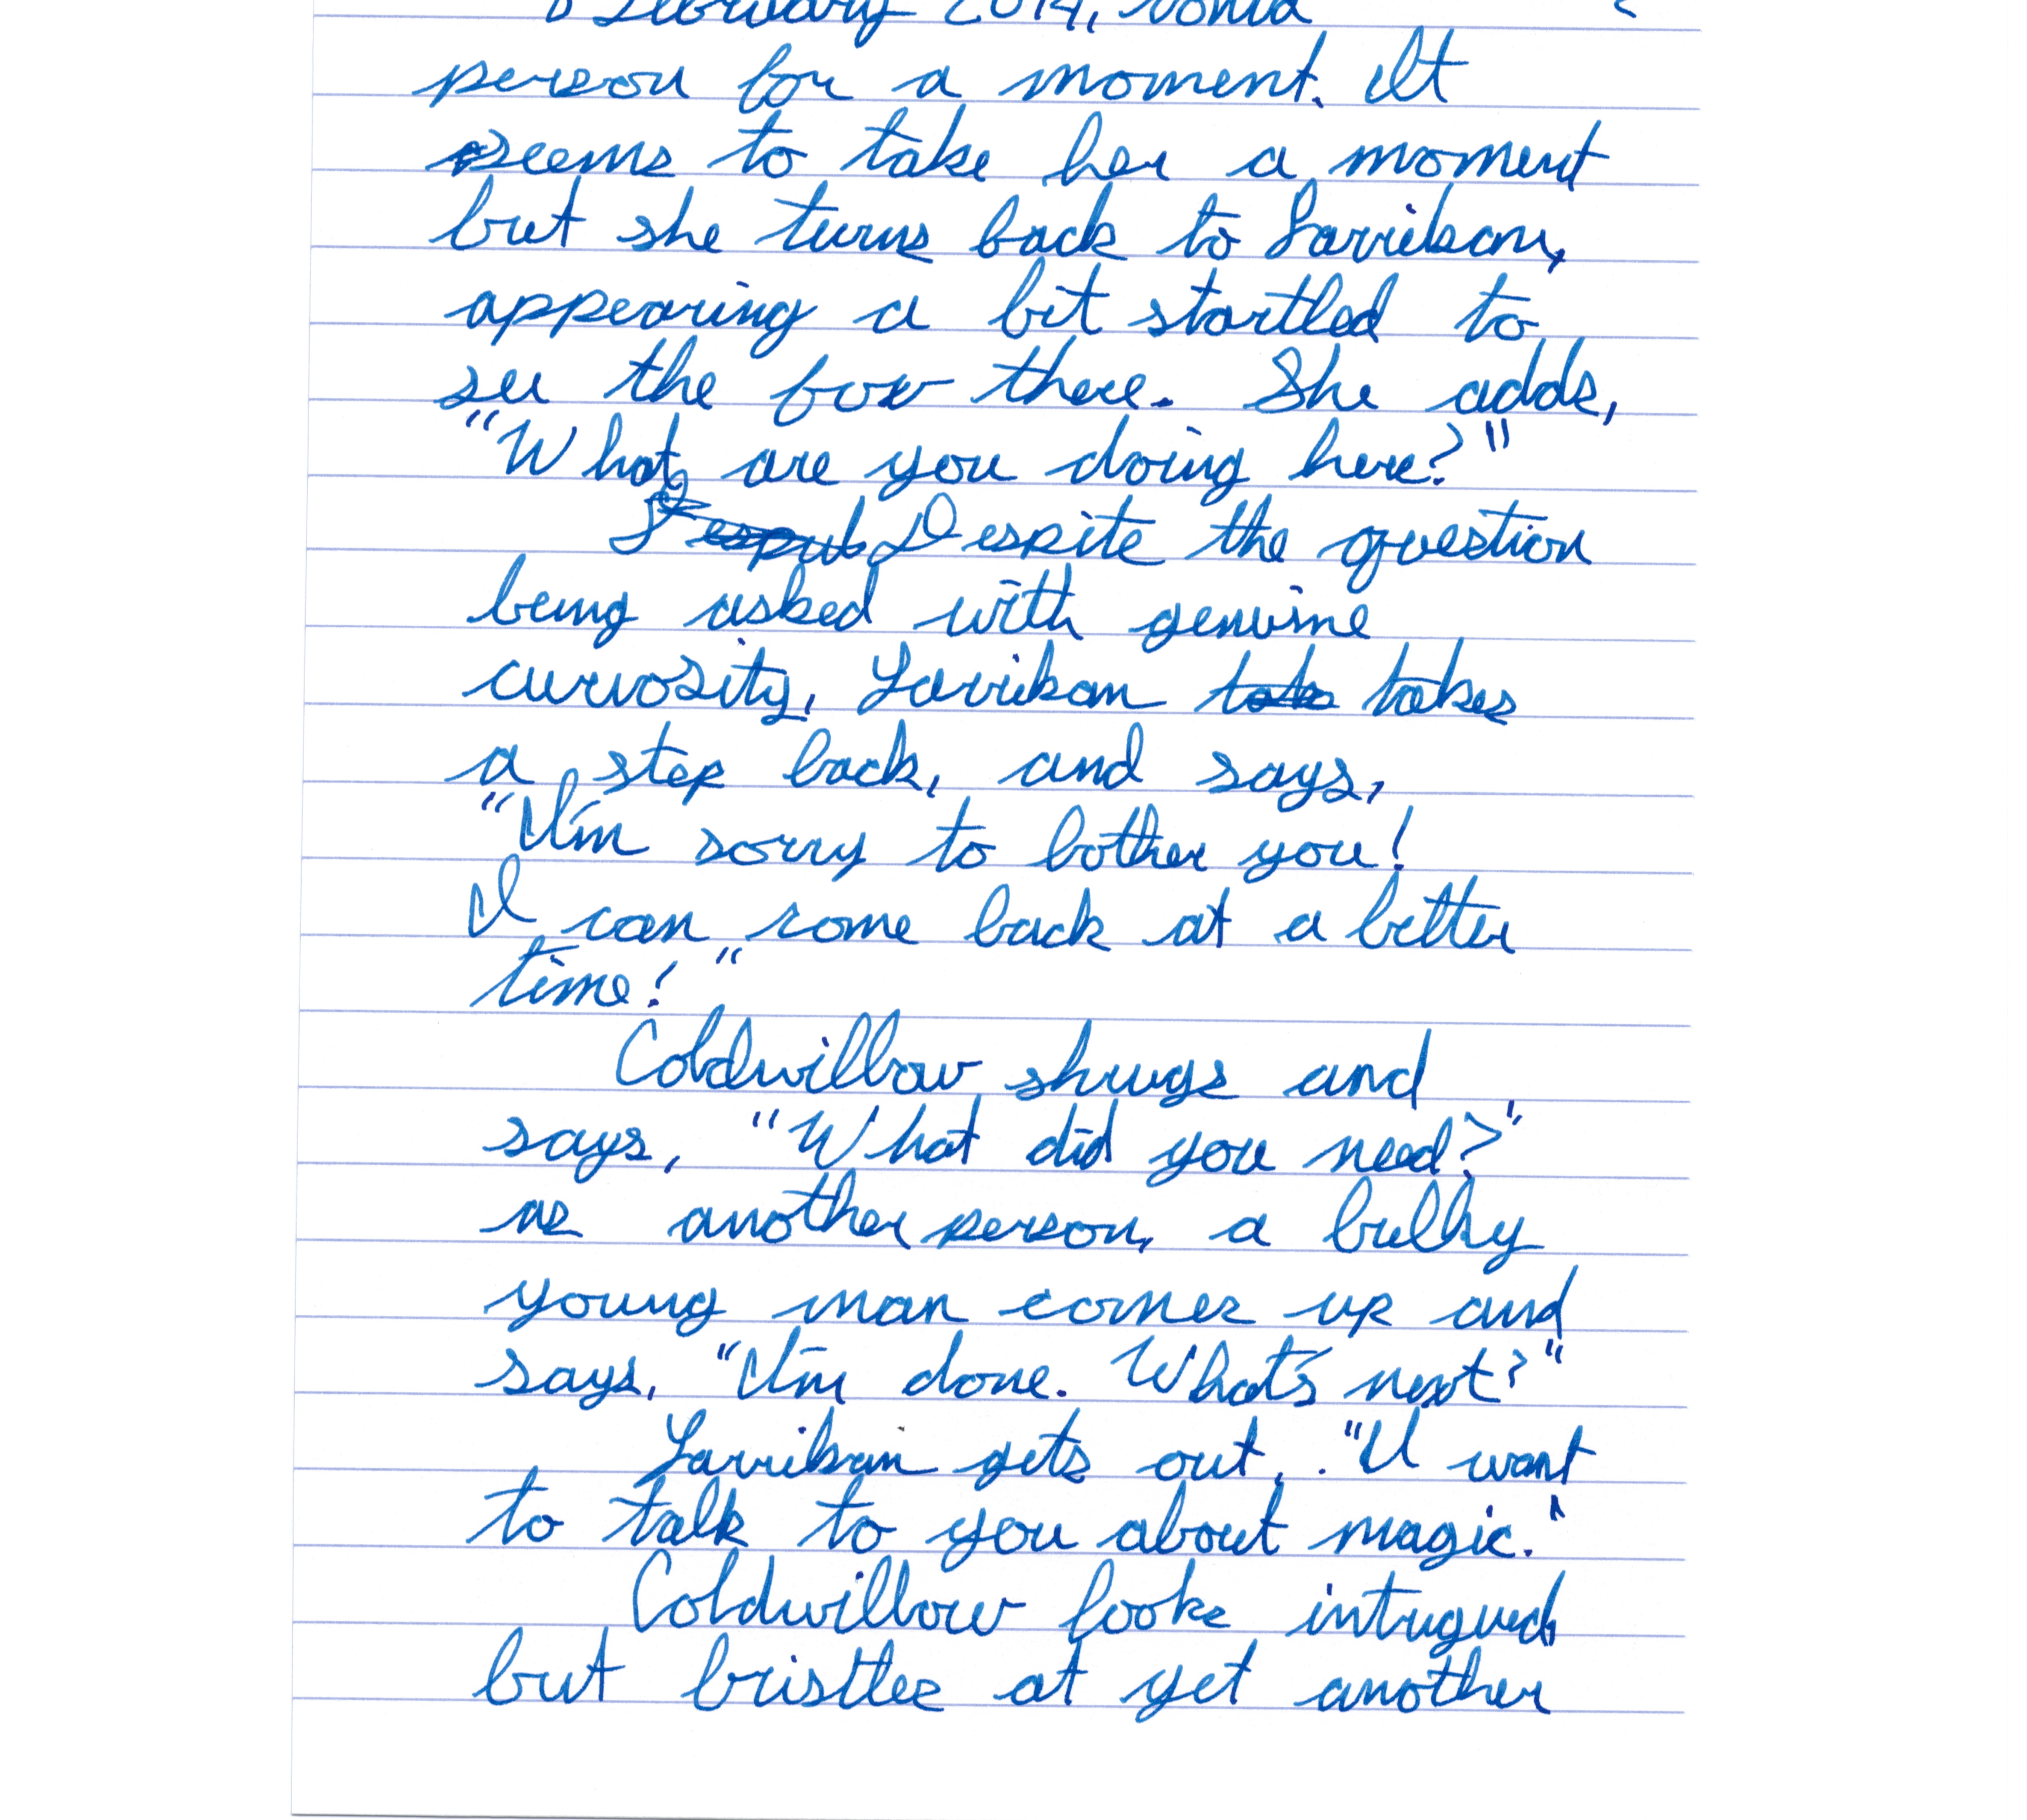 February 2014,
person for a moment. It
seems to take her a moment
but she turns back to Larrikan,
appearing a bit startled to
see the fox there. She adds,
"What are you doing here?"
Despite the question
being asked with genuine
curiosity, Larrikan takes
a step back, and says,
"I'm sorry to bother you!
I can come back at a better
time!"
Coldwillow shrugs and
says, "What did you need?"
as another person, a bulky
young man comes up and
says, "I'm done. What's next?"
Larrikan gets out, "I want
to talk to you about magic."
Coldwillow looks intrigued,
but bristles at yet another